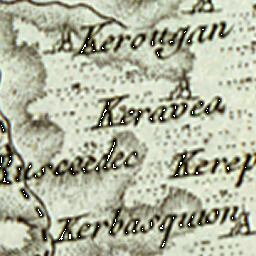 Kerougan
Keravea
Ruscadec
Kerep
Kerbasquion